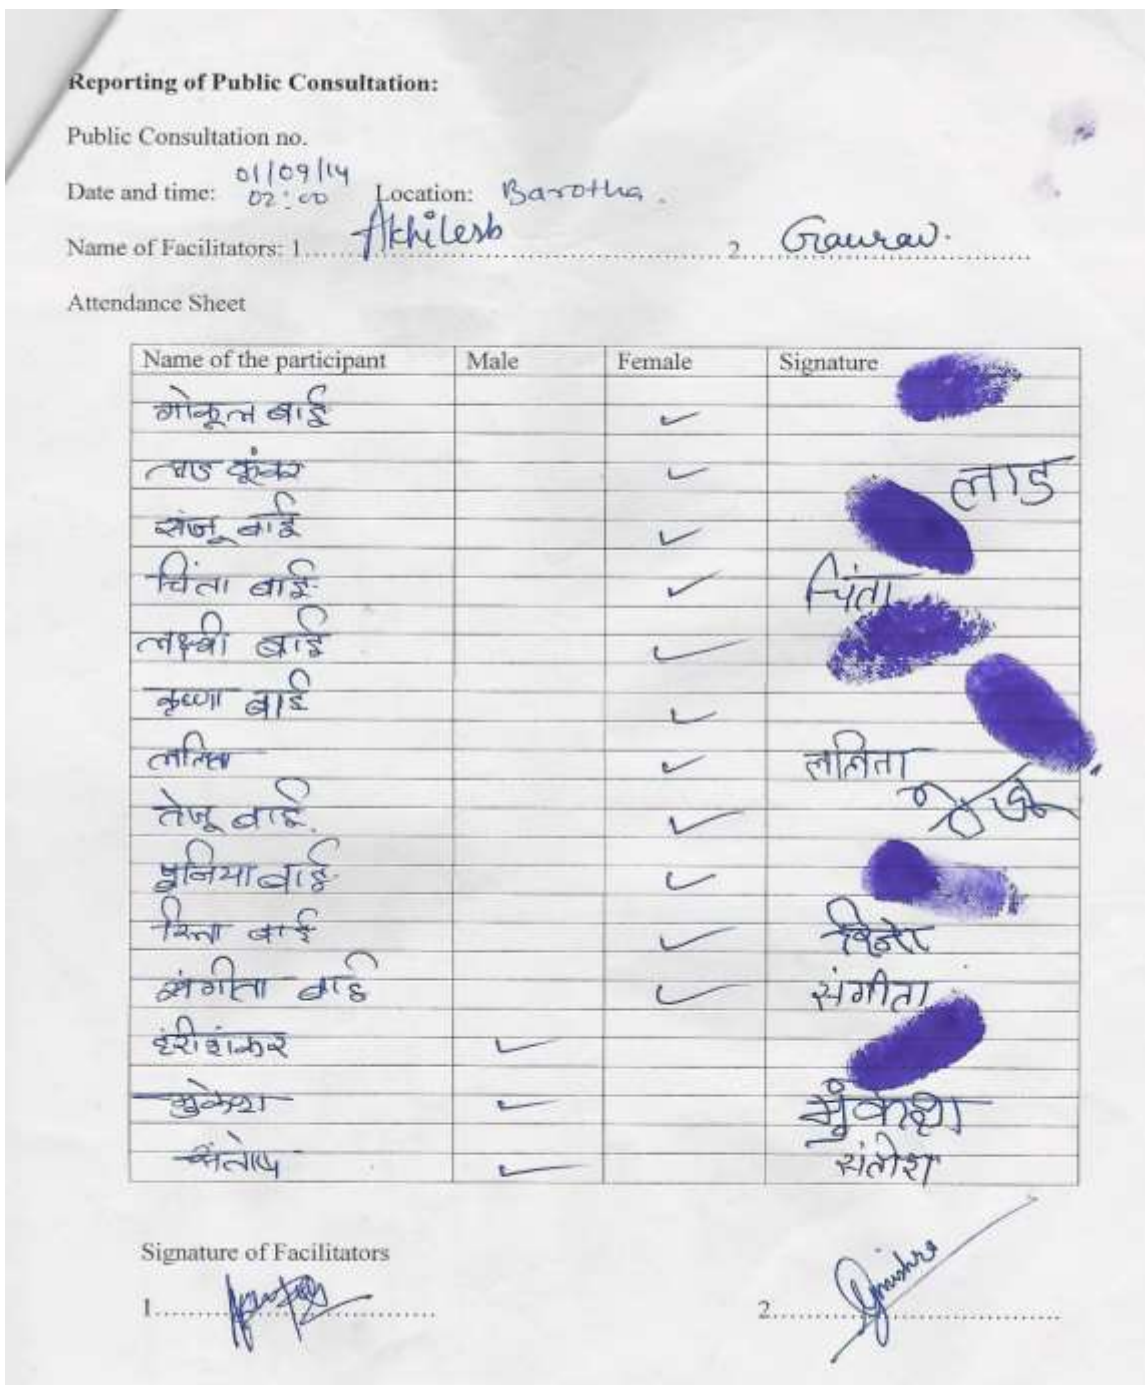 Reporting of Public Consultation:
Public Consultation no.
Date and time: 01/09/14 02:00 Location: Barotha.
Name of Facilitators: 1 Akhilesh 2 Gaurav.
Attendance Sheet
Name of the participant Male Female Signature
गोकुल बाई ✓
लाड कूंवर ✓ लाड
संजू बाई ✓
चिंता बाई ✓ चिंता
लक्ष्मी बाई ✓
कृष्णा बाई ✓
ललिता ✓ ललिता
तेजू बाई ✓ तेजू
बाई ✓
रिना बाई ✓
संगीता बाई ✓ संगीता
हरीशंकर ✓
मुकेश ✓ मुंकेश
संतोष ✓ संतोश
Signature of Facilitators
1 2 Gmishra